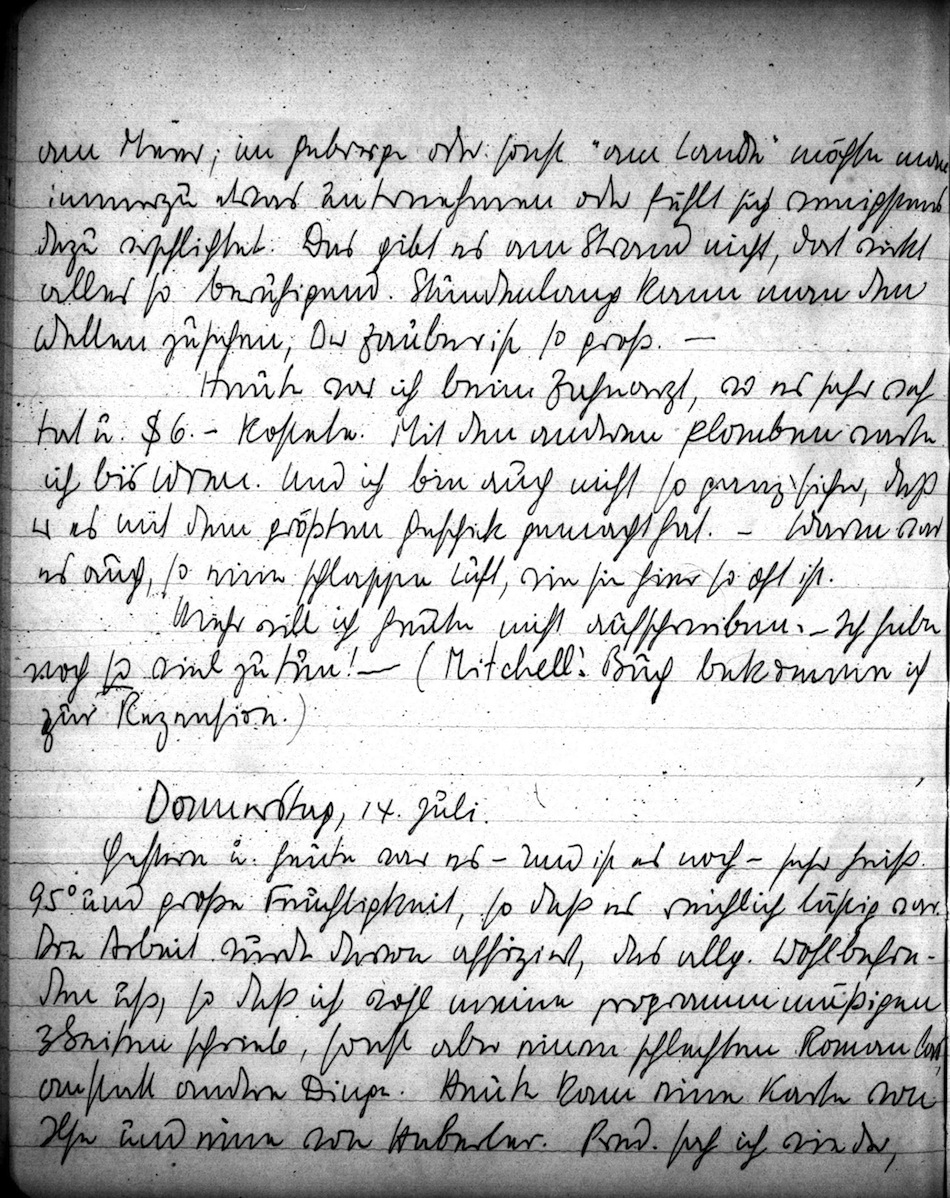 am Meer; im Gebirge oder sonst "am Lande" möchte man
immerzu etwas unternehmen oder fühlt sich wenigstens
dazu verpflichtet. Das gibt es am Strand nicht, dort wirkt
alles so beruhigend. Stundenlang kann man den
Wellen zusehen, der Zauber ist so groß. —
Heute war ich beim Zahnarzt, wo es sehr weh
tat u. $6.- kostete. Mit den anderen Plomben warte
ich bis Wien. Und ich bin auch nicht so ganz sicher, daß
er es mit dem größten Geschick gemacht hat. – Warm war
es auch, so eine schlappe Luft, wie sie hier so oft ist.
Mehr will ich heute nicht aufschreiben. – Ich habe
noch so viel zu tun! — (Mitchell's Buch bekomme ich
zur Rezension.)
Donnerstag, 14. Juli.
Gestern u. heute war es – und ist es noch – sehr heiß.
95° und große Feuchtigkeit, so daß es reichlich lästig war.
Die Arbeit wurde davon affiziert, das allg. Wohlbefin-
den usf, so daß ich wohl meine programmmäßigen
3 Seiten schrieb, sonst aber einen schlechten Roman las,
anstatt andrer Dinge. Heute kam eine Karte von
Ilse und eine von Haberler. Pred. sah ich wieder,